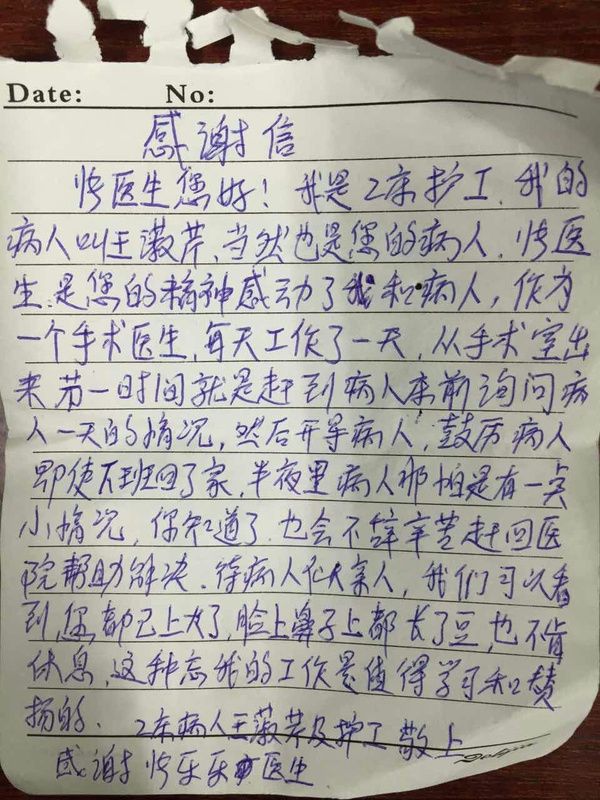 Date: No:
感谢信
医生您好！我是2床护工,我的
病人叫王淑芹,当然也是您的病人,医
生,是您的精神感动了我和病人，作为
一个手术医生,每天工作了一天,从手术室出
来,第一时间就是赶到病人床前询问病
人一天的情况,然后开导病人,鼓励病人
即使下班回了家,半夜里病人那怕是有一点
小情况,你知道了,也会不辞辛苦赶回医
院帮助解决,待病人似亲人,我们可以看
到,您都已上火了,脸上鼻子上都长了豆,也不肯
休息,这种忘我的工作是值得学习和赞
扬的. 2床病人王淑芹及护工敬上
感谢医生